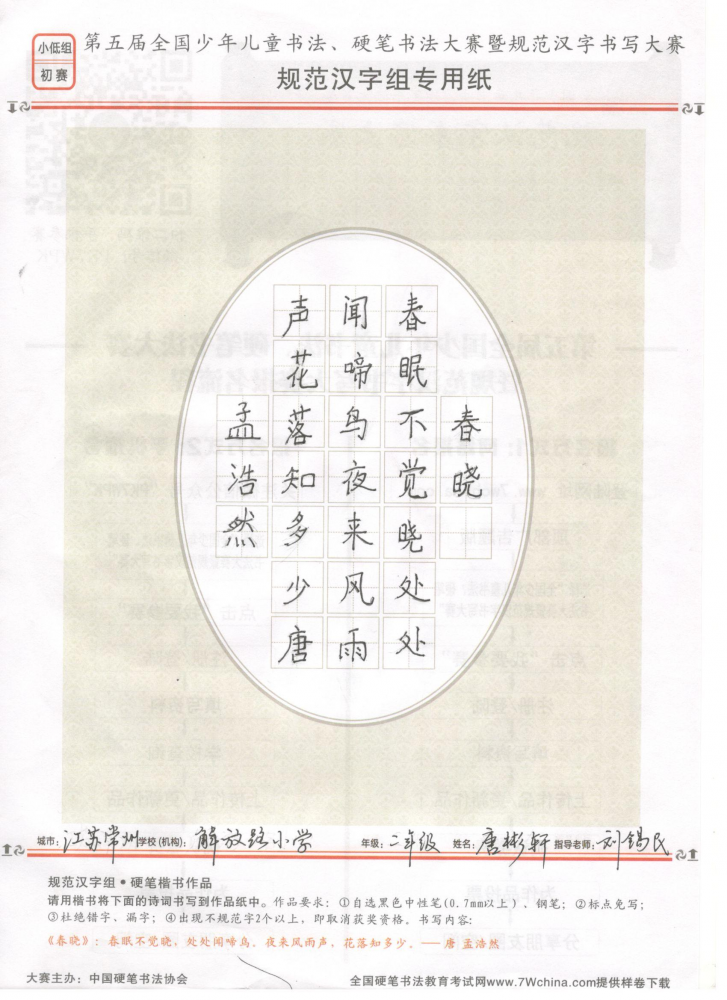 小低组
初赛
第五届全国少年儿童书法、硬笔书法大赛暨规范汉字书写大赛
规范汉字组专用纸
春晓
春眠不觉晓处处
闻啼鸟夜来风雨
声花落知多少唐
孟浩然
城市: 江苏常州 学校(机构): 解放路小学 年级: 二年级 姓名: 唐彬轩 指导老师: 刘锡民
规范汉字组•硬笔楷书作品
请用楷书将下面的诗词书写到作品纸中。作品要求: ①自选黑色中性笔(0.7mm以上)、钢笔; ②标点免写;
③杜绝错字、漏字; ④出现不规范字2个以上, 即取消获奖资格。书写内容:
《春晓》: 春眠不觉晓, 处处闻啼鸟。夜来风雨声, 花落知多少。——唐 孟浩然
大赛主办: 中国硬笔书法协会
全国硬笔书法教育考试网www.7Wchina.com提供样卷下载